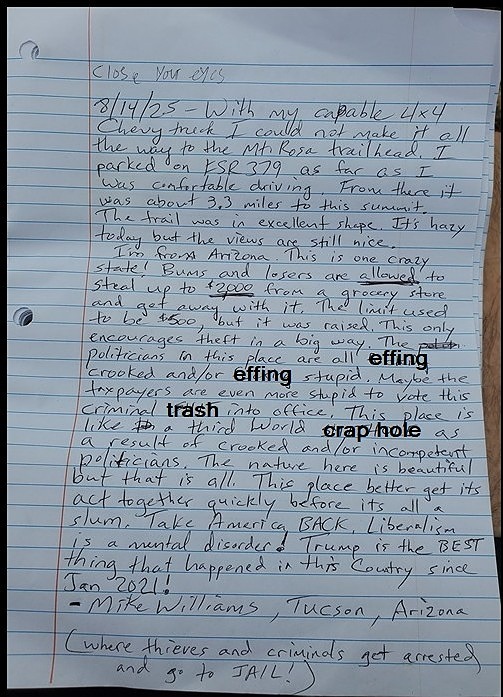 Close your eyes
8/14/25 - With my capable 4x4
Chevy truck I could not make it all
the way to the Mt. Rosa trailhead. I
parked on FSR 379 as far as I
was comfortable driving. From there it
was about 3.3 miles to this summit.
The trail was in excellent shape. It's hazy
today but the views are still nice.
I'm from Arizona. This is one crazy
state! Bums and losers are allowed to
steal up to $2000 from a grocery store
and get away with it. The limit used
to be $500, but it was raised. This only
encourages theft in a big way. The
politicians in this place are all effing
crooked and/or effing stupid. Maybe the
taxpayers are even more stupid to vote this
criminal trash into office. This place is
like a third world crap hole as
a result of crooked and/or incompetent
politicians. The nature here is beautiful
but that is all. This place better get its
act together quickly before its all a
slum. Take America BACK. Liberalism
is a mental disorder! Trump is the BEST
thing that happened in this Country since
Jan 2021!
- Mike Williams, Tucson, Arizona
(where thieves and criminals get arrested
and go to JAIL!)